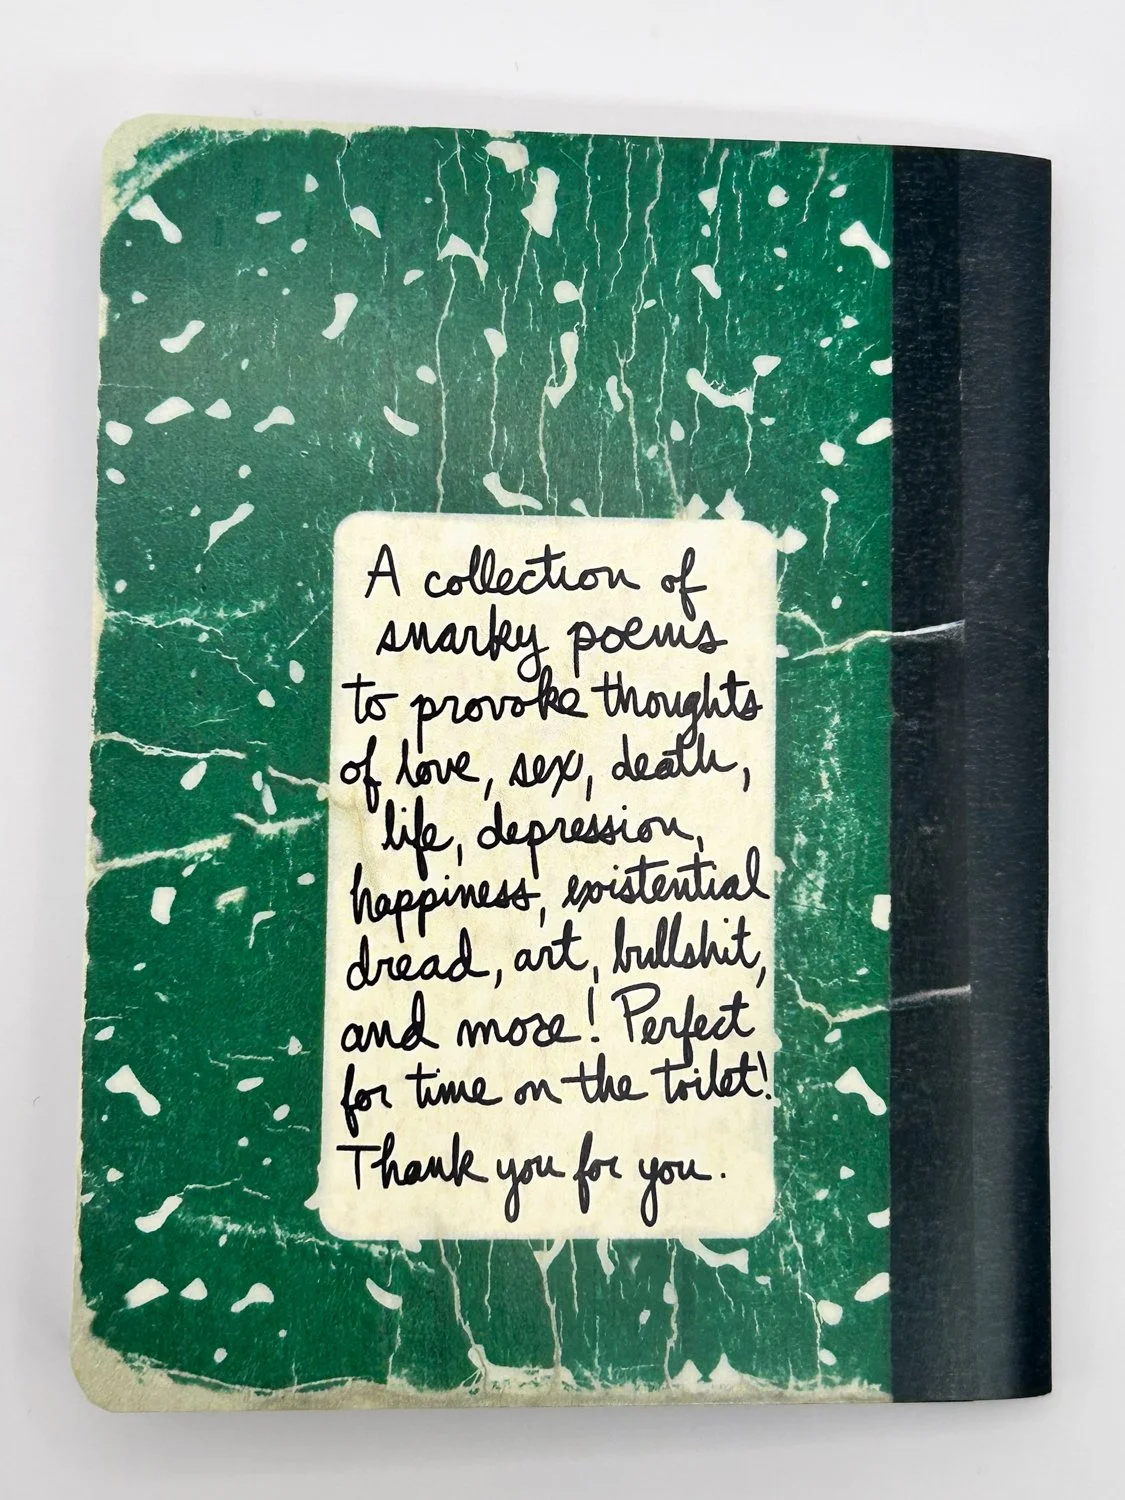 A collection of
snarky poems
to provoke thoughts
of love, sex, death,
life, depression,
happiness, existential
dread, art, bullshit,
and more! Perfect
for time on the toilet!
Thank you for you.